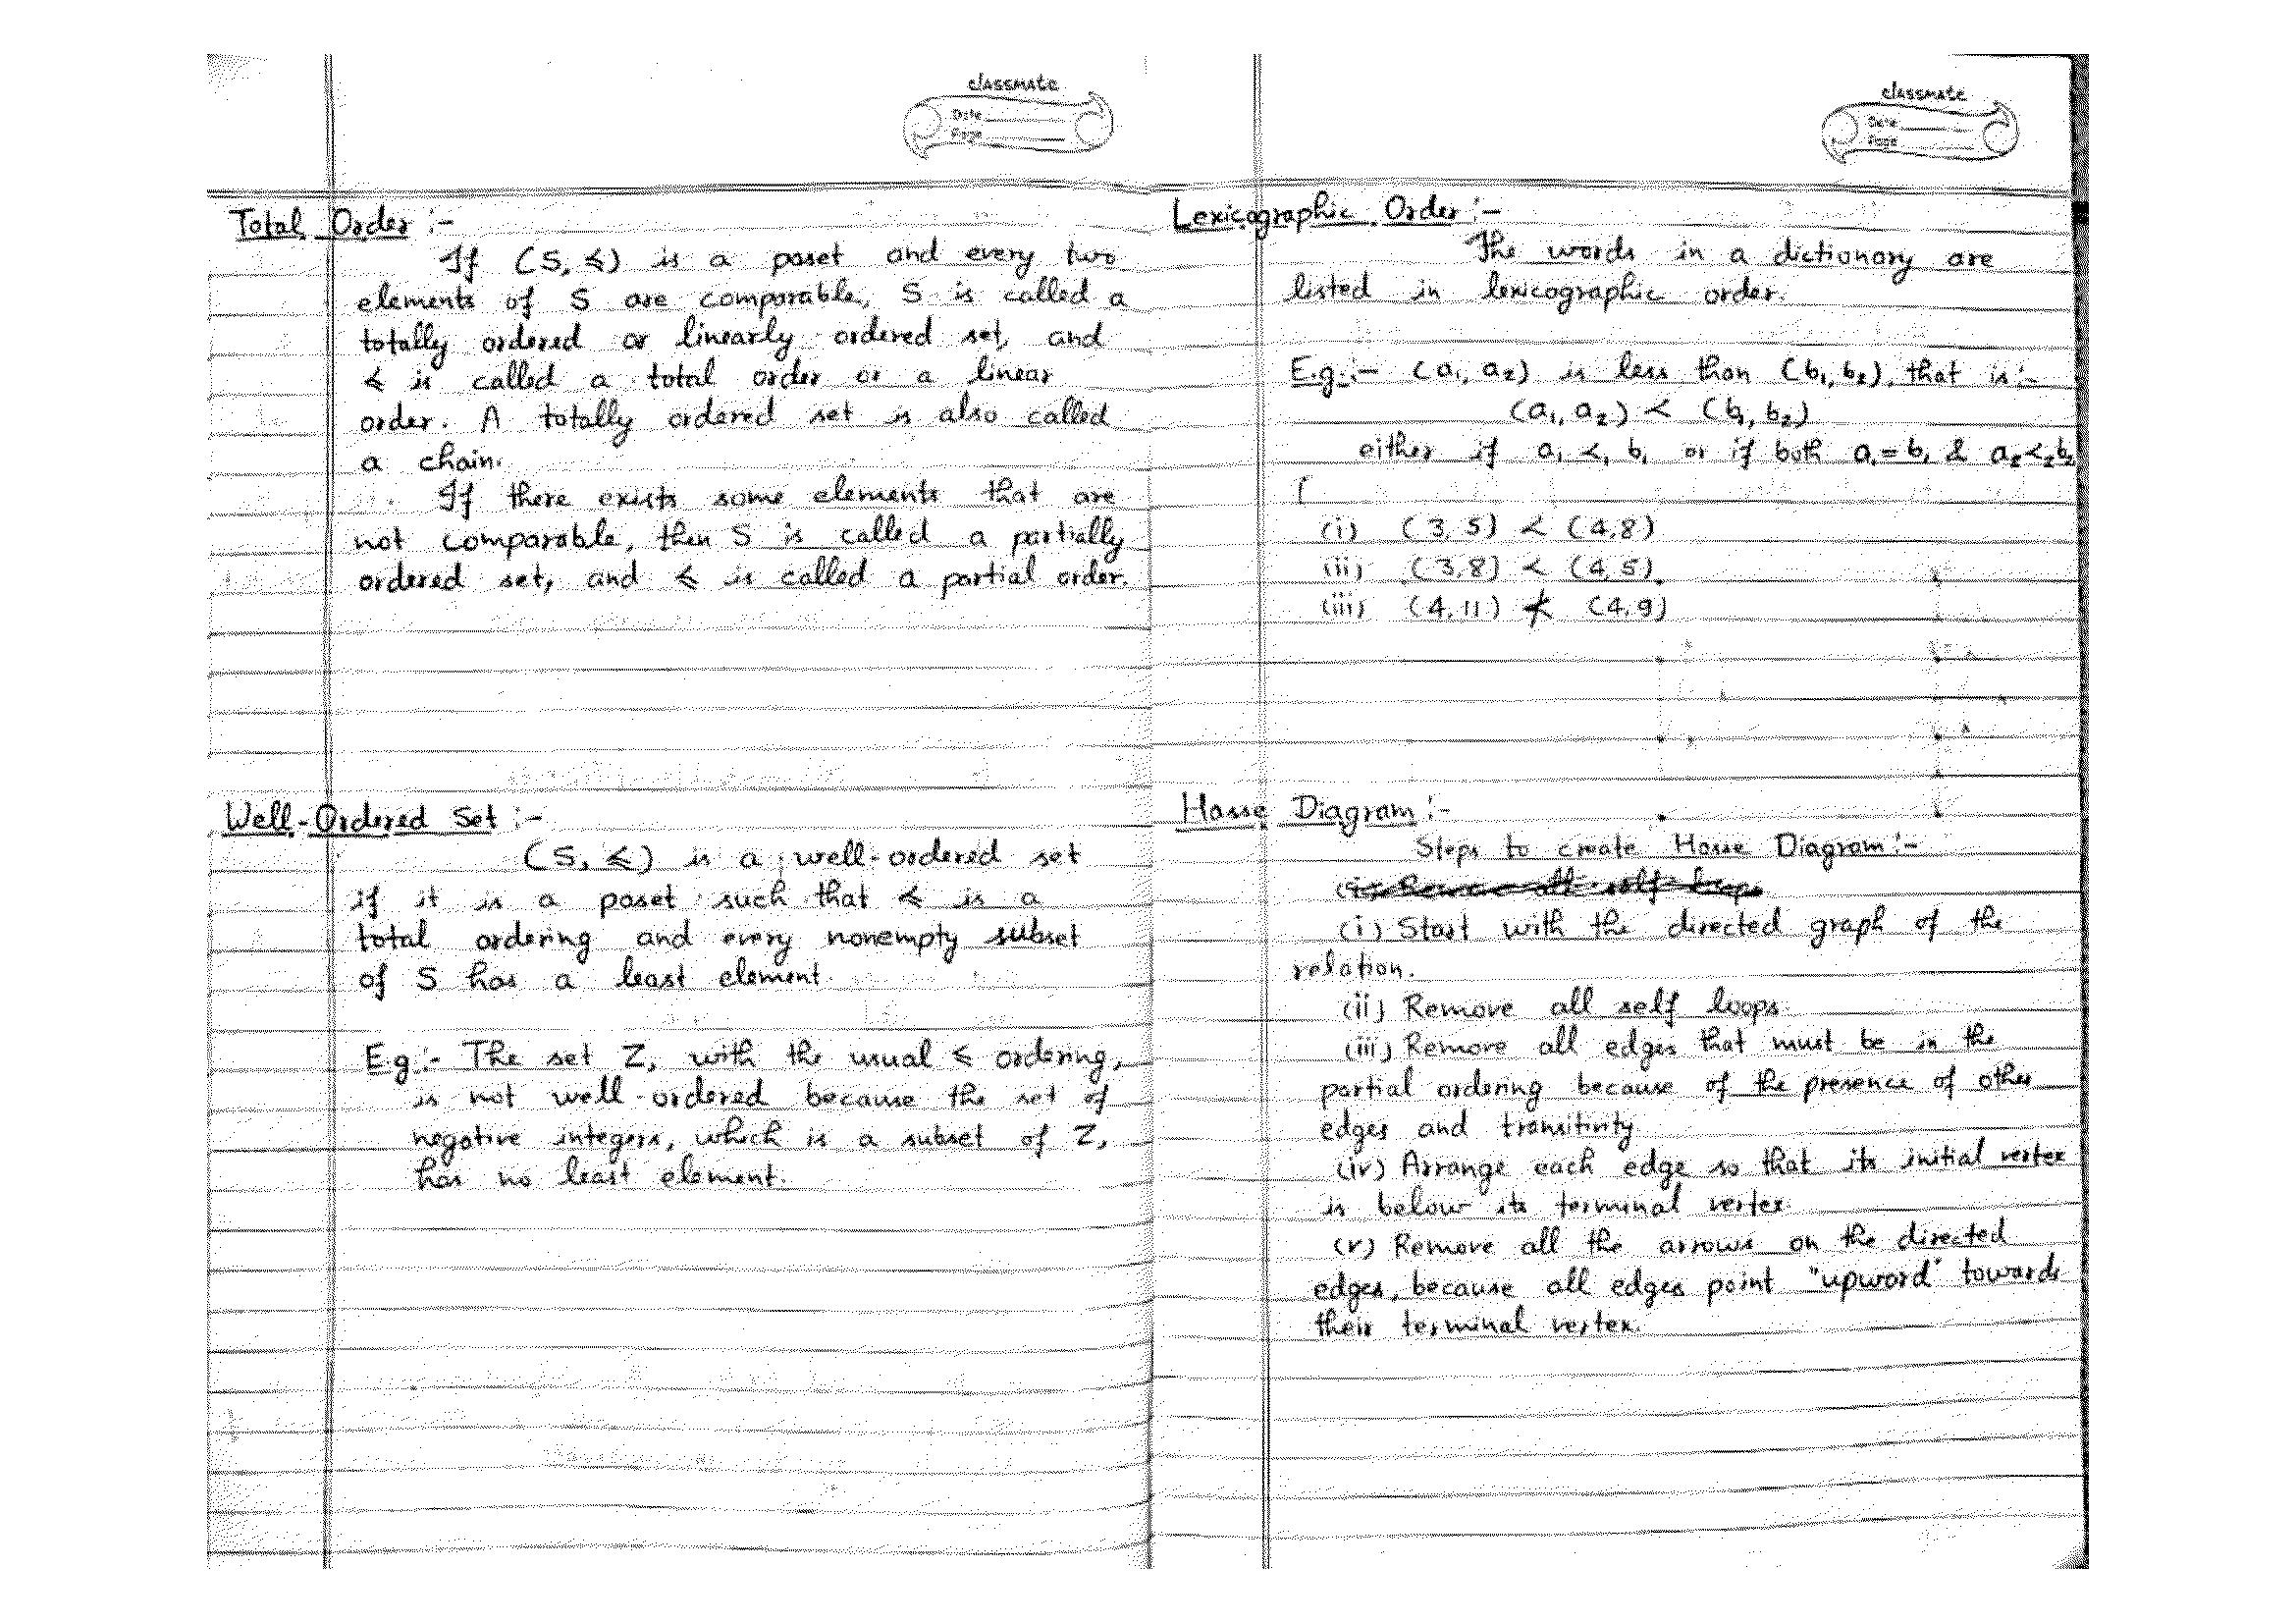 classmate
Date
Page
Total Order :-
If (S, ≼) is a poset and every two
elements of S are comparable, S is called a
totally ordered or linearly ordered set, and
≼ is called a total order or a linear
order. A totally ordered set is also called
a chain.
If there exists some elements that are
not comparable, then S is called a partially
ordered set, and ≼ is called a partial order.
Well-Ordered Set :-
(S, ≼) is a well-ordered set
if it is a poset such that ≼ is a
total ordering and every nonempty subset
of S has a least element.
E.g :- The set Z, with the usual ≤ ordering,
is not well-ordered because the set of
negative integers, which is a subset of Z,
has no least element.
classmate
Date
Page
Lexicographic Order :-
The words in a dictionary are
listed in lexicographic order.
E.g. :- (a₁, a₂) is less than (b₁, b₂), that is :-
(a₁, a₂) ≺ (b₁, b₂)
either if a₁ ≺₁ b₁ or if both a₁ = b₁ & a₂ ≺₂ b₂
(i) (3, 5) ≺ (4, 8)
(ii) (3, 8) ≺ (4, 5)
(iii) (4, 11) ⊀ (4, 9)
Hasse Diagram :-
Steps to create Hasse Diagram :-
(i) Remove all self loops
(i) Start with the directed graph of the
relation.
(ii) Remove all self loops.
(iii) Remove all edges that must be in the
partial ordering because of the presence of other
edges and transitivity
(iv) Arrange each edge so that its initial vertex
is below its terminal vertex.
(v) Remove all the arrows on the directed
edges, because all edges point "upword" towards
their terminal vertex.